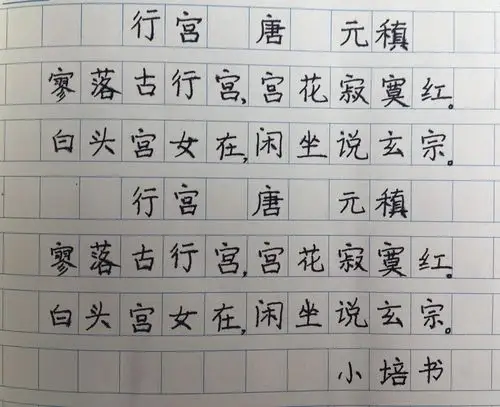 行宫 唐 元稹
寥落古行宫,宫花寂寞红。
白头宫女在,闲坐说玄宗。
行宫 唐 元稹
寥落古行宫,宫花寂寞红。
白头宫女在,闲坐说玄宗。
小培书